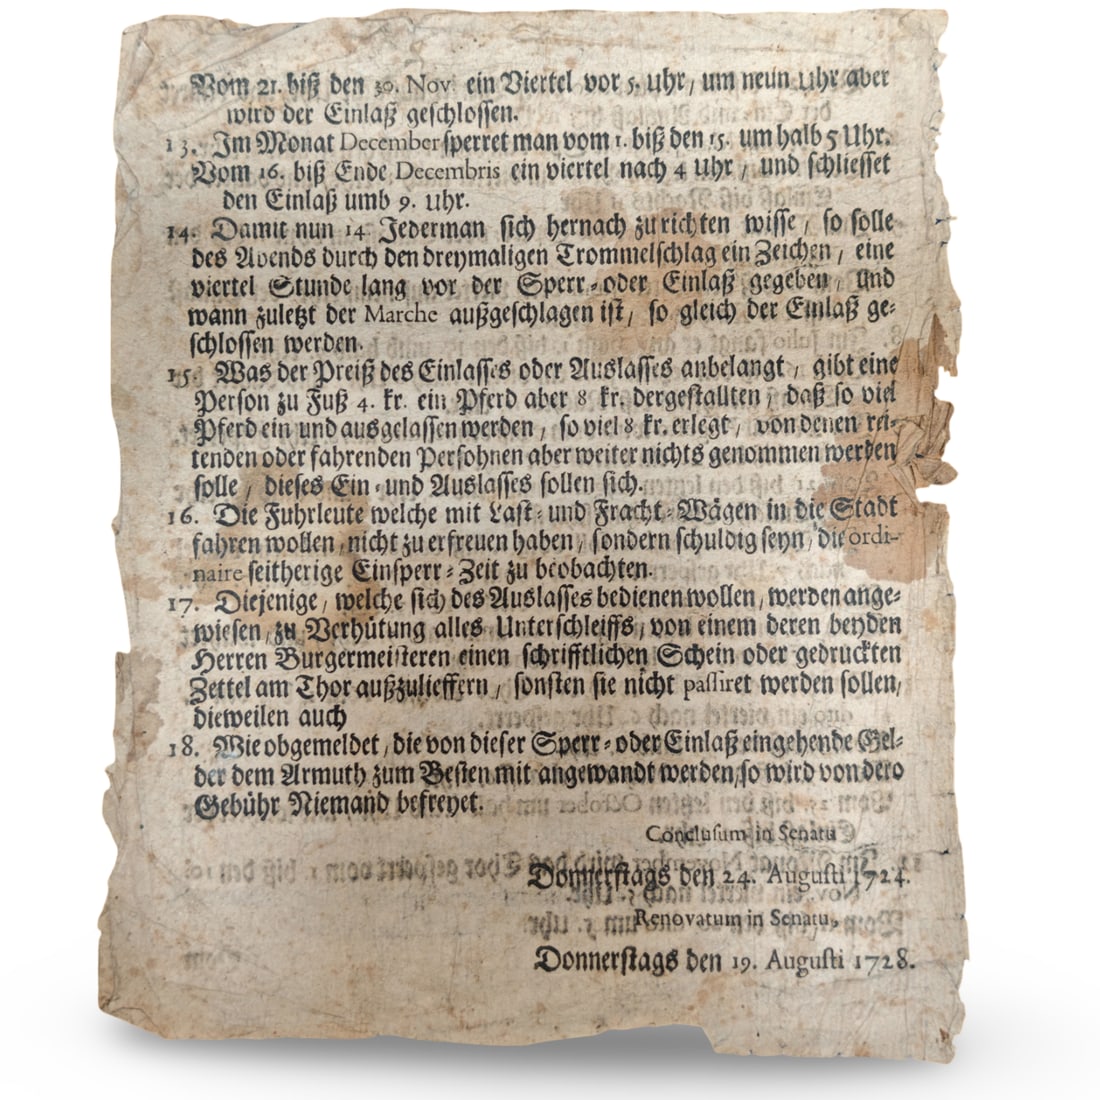 Vom 21. biß den 30. Nov. ein Viertel vor 5. Uhr, um neun Uhr aber
wird der Einlaß geschlossen.
13. Im Monat December sperret man vom 1. biß den 15. um halb 5 Uhr.
Vom 16. biß Ende Decembris ein viertel nach 4 Uhr, und schliesset
den Einlaß umb 9. Uhr.
14. Damit nun 14 Jederman sich hernach zu richten wisse, so solle
des Abends durch den dreymaligen Trommelschlag ein Zeichen, eine
viertel Stunde lang vor der Sperr-oder Einlaß gegeben, und
wann zuletzt der Marche außgeschlagen ist, so gleich der Einlaß ge-
schlossen werden.
15. Was der Preiß des Einlasses oder Auslasses anbelangt, gibt eine
Person zu Fuß 4. kr. ein Pferd aber 8 kr. dergestallten, daß so viel
Pferd ein und ausgelassen werden, so viel 8 kr. erlegt, von denen rei-
tenden oder fahrenden Persohnen aber weiter nichts genommen werden
solle, dieses Ein-und Auslasses sollen sich.
16. Die Fuhrleute welche mit Last-und Fracht-Wägen in die Stadt
fahren wollen, nicht zu erfreuen haben, sondern schuldig seyn, die ordi-
naire seitherige Einsperr-Zeit zu beobachten.
17. Diejenige, welche sich des Auslasses bedienen wollen, werden ange-
wiesen, zu Verhütung alles Unterschleiffs, von einem deren beyden
Herren Burgermeisteren einen schrifftlichen Schein oder gedruckten
Zettel am Thor außzulieffern, sonsten sie nicht passiret werden sollen,
dieweilen auch
18. Wie obgemeldet, die von dieser Sperr-oder Einlaß eingehende Gel-
der dem Armuth zum Besten mit angewandt werden, so wird von dero
Gebühr Niemand befreyet.
Conclusum in Senatu
Donnerstags den 24. Augusti 1724.
Renovatum in Senatu,
Donnerstags den 19. Augusti 1728.